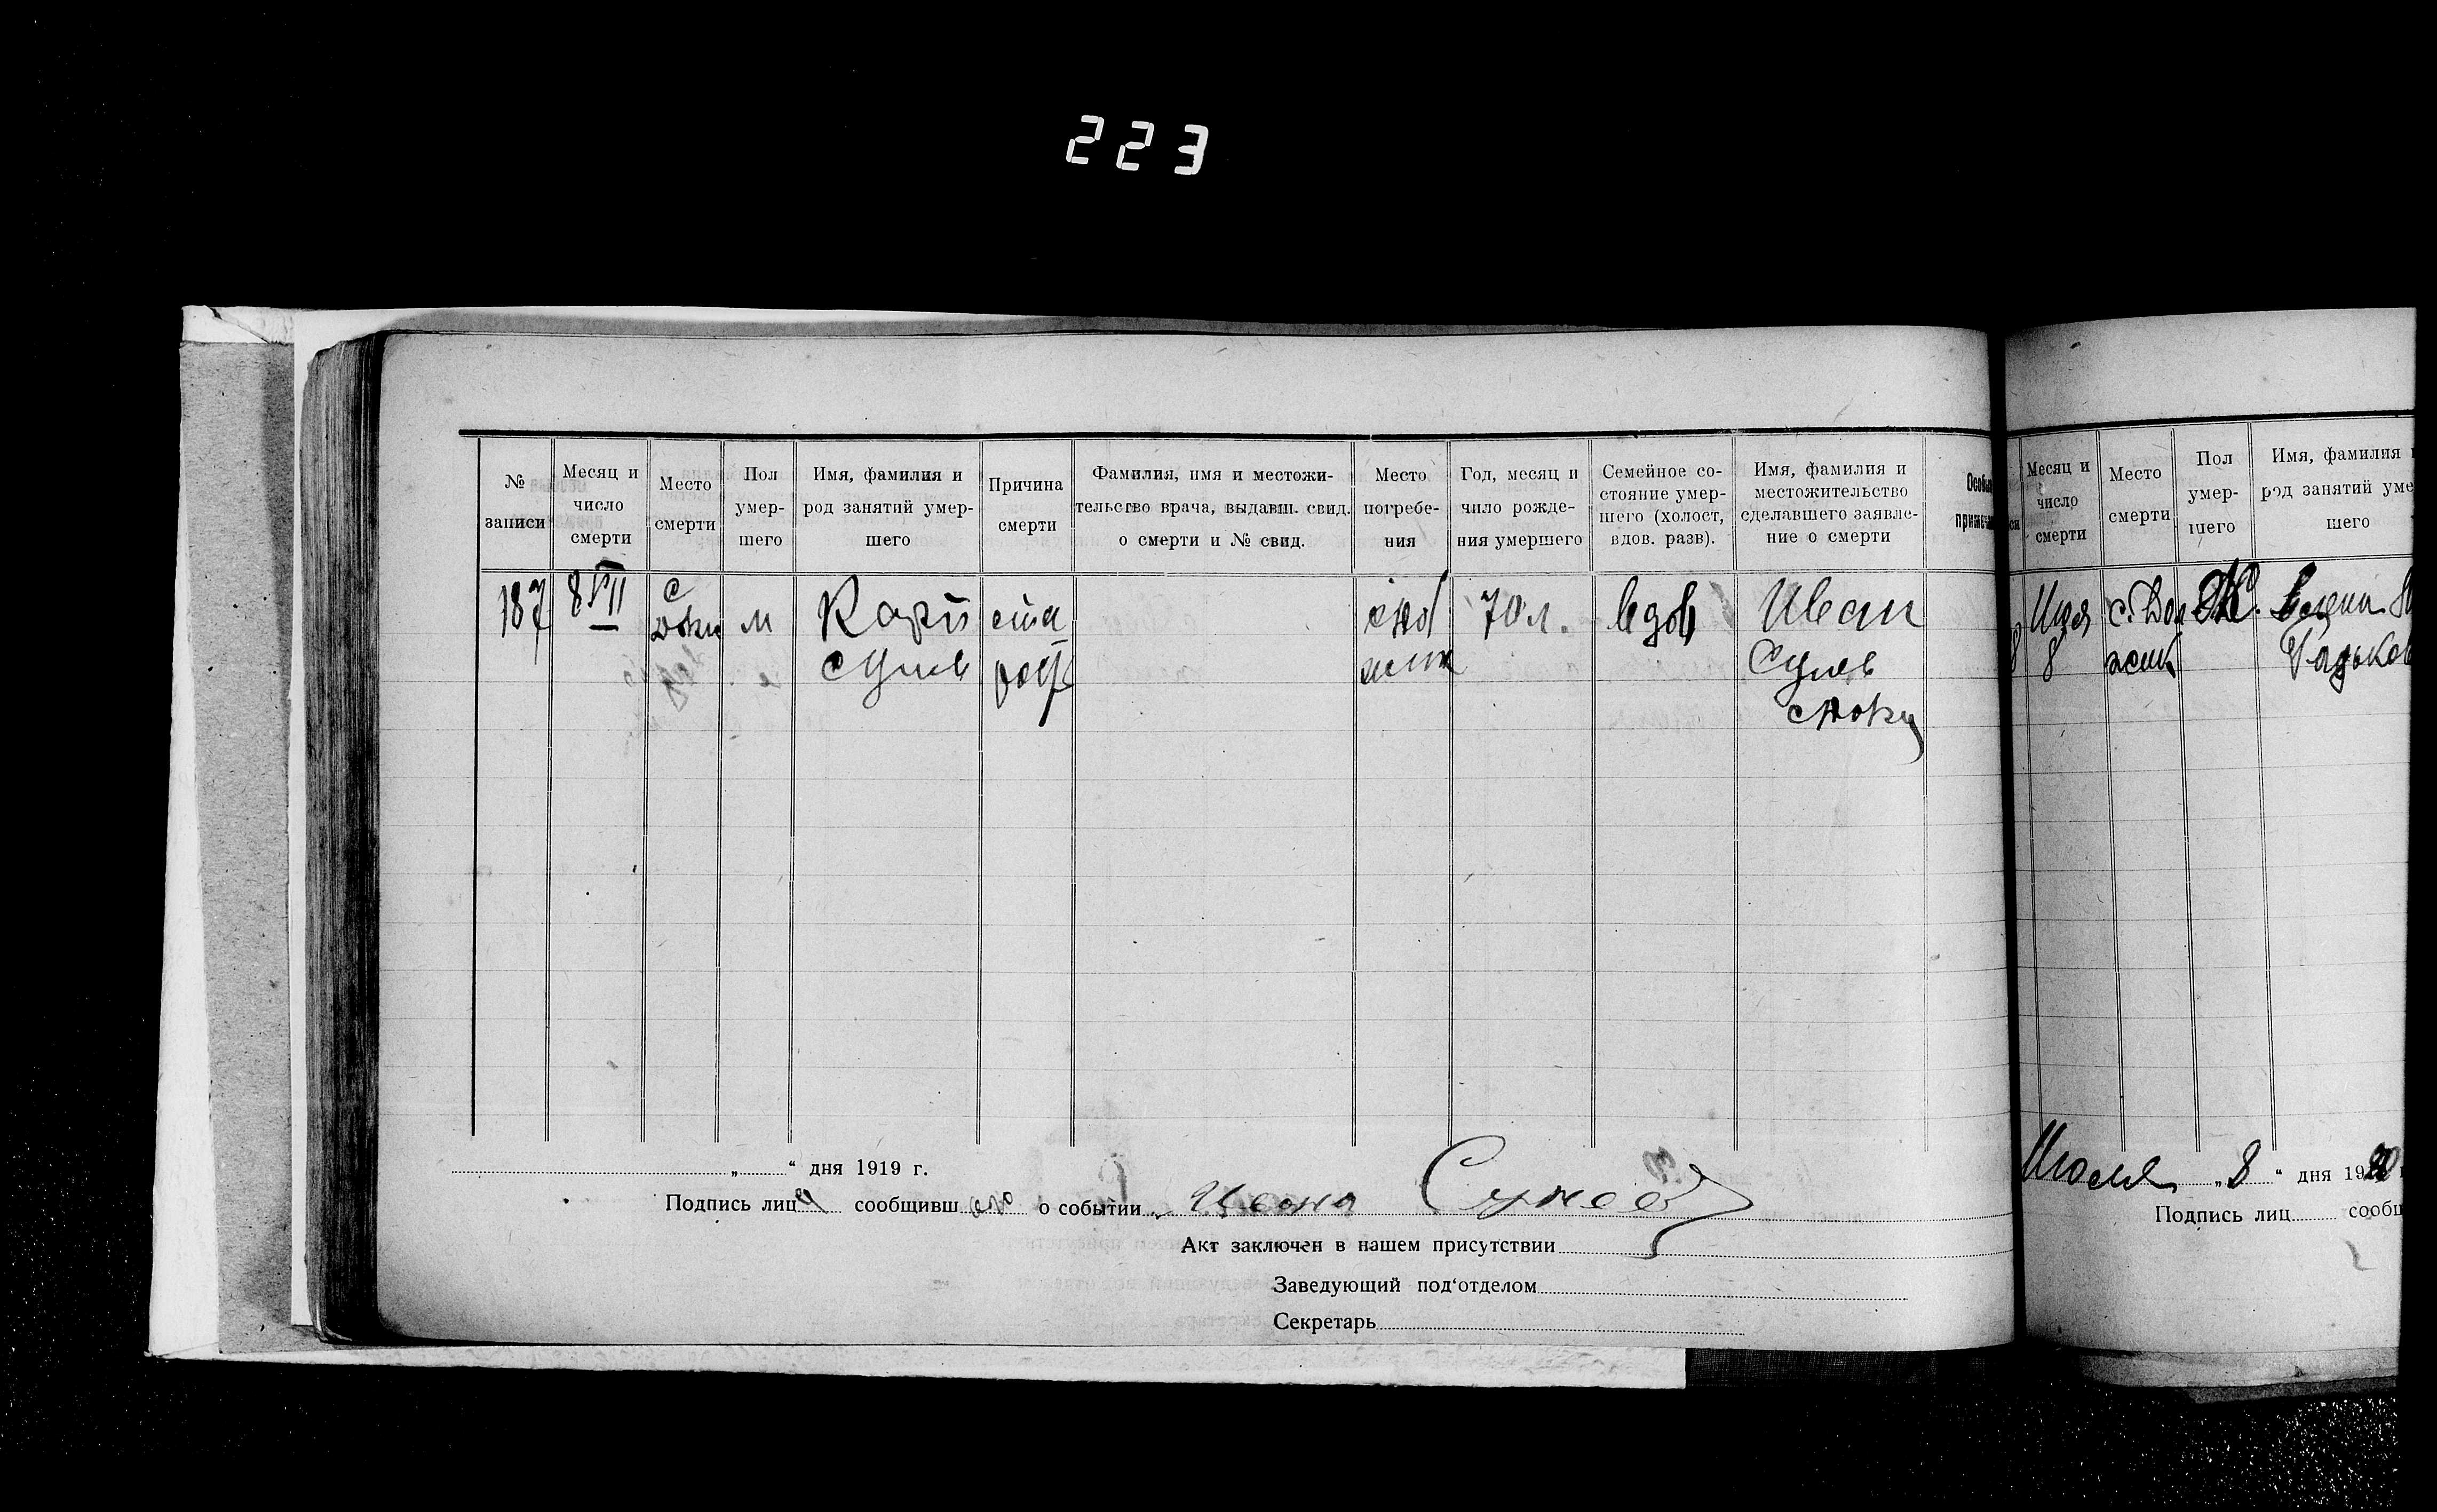 223
№
записи
Месяц и
число
смерти
Место
смерти
Пол
умер-
шего
Имя, фамилия и
род занятий умер-
шего
Причина
смерти
Фамилия, имя и местожи-
тельство врача, выдавш. свид.
о смерти и № свид.
Место
погребе-
ния
Год, месяц и
число рожде-
ния умершего
Семейное со-
стояние умер-
шего (холост,
вдов. разв).
Имя, фамилия и
местожительство
сделавшего заявле-
ние о смерти
187
8 VII
с
м
Карп
ста
70 л.
вдов
Иван
„ “ дня 1919 г.
Подпись лица сообщивш о событии
Акт заключен в нашем присутствии
Заведующий под‘отделом
Секретарь
Месяц и
число
смерти
Место
смерти
Пол
умер-
шего
Имя, фамилия
род занятий уме
шего
8
Ж.
Июля „ 8 “ дня 1920
Подпись лиц сообщ